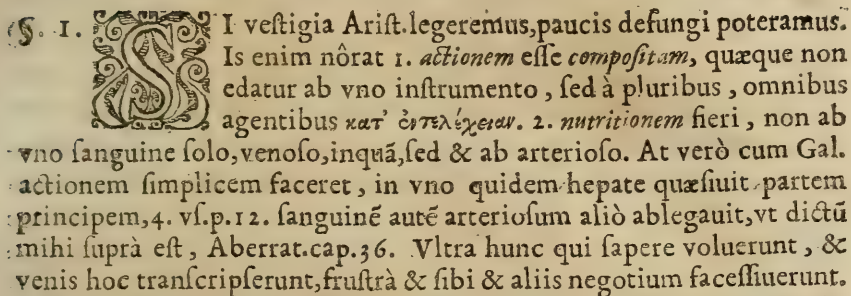 §. 1. SI veſtigia Ariſt. legeremus, paucis defungi poteramus.
Is enim nôrat 1. actionem eſſe compoſitam, quæque non
edatur ab vno inſtrumento, ſed à pluribus, omnibus
agentibus κατ' ἐντελέχειαν. 2. nutritionem fieri, non ab
vno ſanguine ſolo, venoſo, inquã, ſed & ab arterioſo. At verò cum Gal.
actionem ſimplicem faceret, in vno quidem hepate quæſiuit partem
principem, 4. vſ. p. 12. ſanguinẽ autẽ arterioſum aliò ablegauit, vt dictũ
mihi ſuprà eſt, Aberrat. cap. 36. Vltra hunc qui ſapere voluerunt, &
venis hoc tranſcripſerunt, fruſtrà & ſibi & aliis negotium faceſſiuerunt.